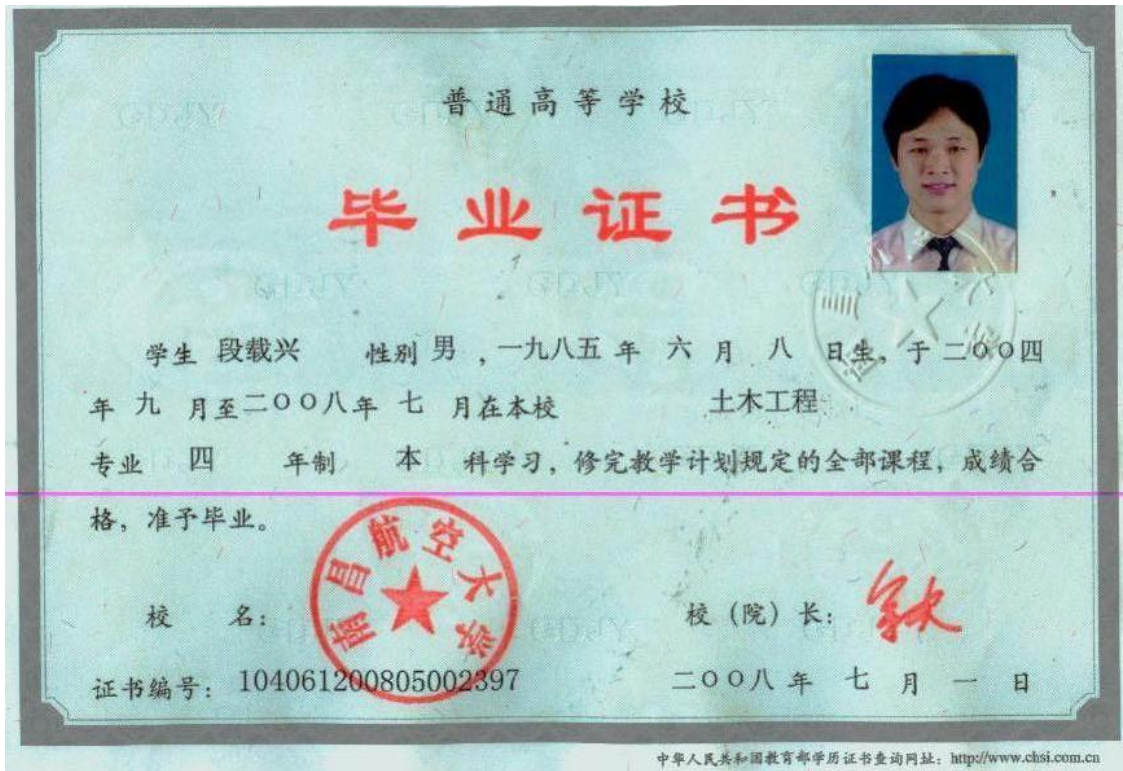 普通高等学校
毕业证书
学生 段载兴 性别 男 ,一九八五 年 六 月 八 日生, 于 二〇〇四
年 九 月至 二〇〇八 年 七 月在本校 土木工程
专业 四 年制 本 科学习, 修完教学计划规定的全部课程, 成绩合
格, 准予毕业。
南昌航空大学
校 名:
校（院）长:
证书编号: 104061200805002397
二〇〇八 年 七 月 一 日
中华人民共和国教育部学历证书查询网址: http://www.chsi.com.cn